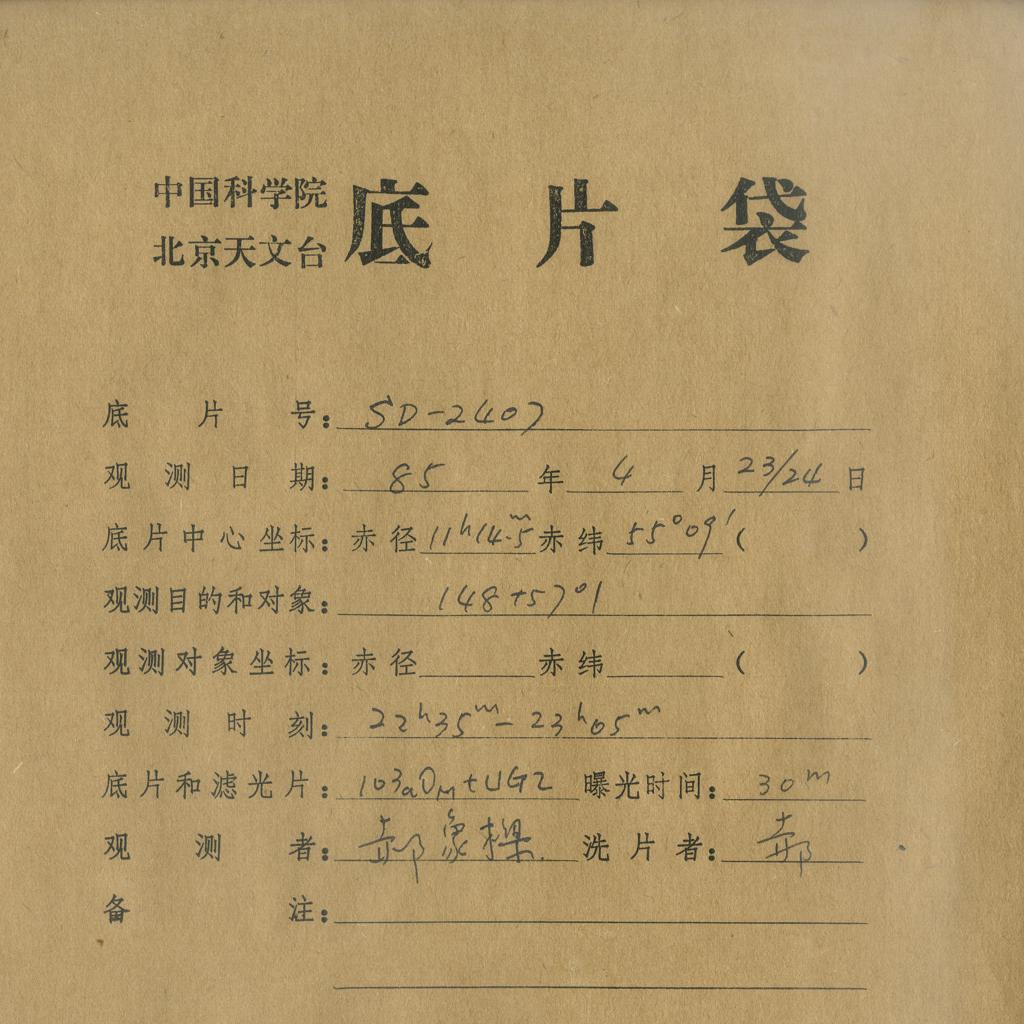 中国科学院
北京天文台
底片袋
底片号：SD-2407
观测日期：85年4月23/24日
底片中心坐标：赤径11h14.5m赤纬55°09′（ ）
观测目的和对象：148+57°1
观测对象坐标：赤径 赤纬 （ ）
观测时刻：22h35m-23h05m
底片和滤光片：103aOM+UG2 曝光时间：30m
观测者：郝象樑 洗片者：郝
备注：